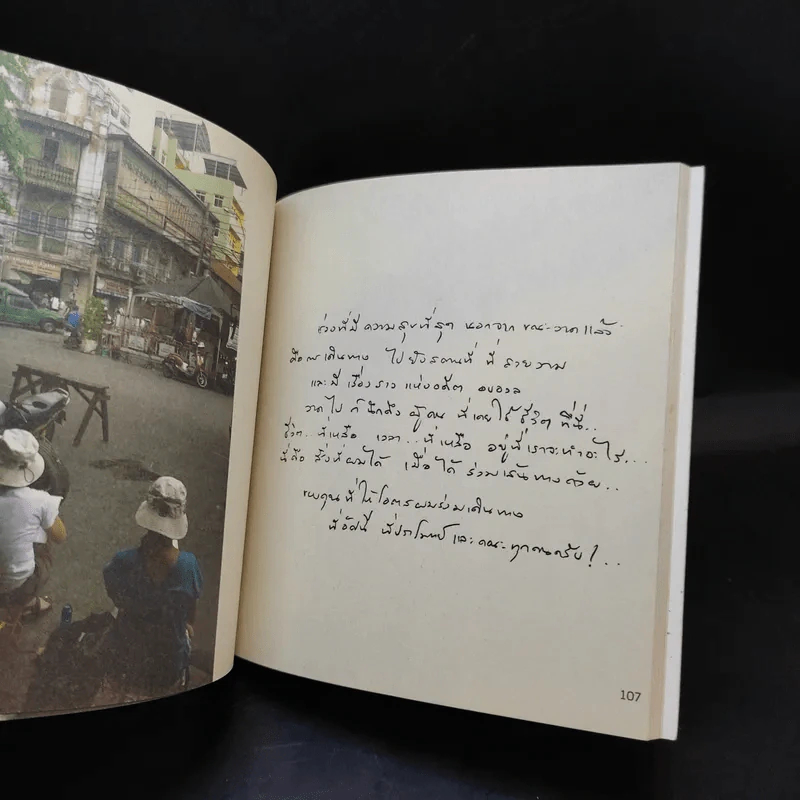 ช่วงที่มีความสุขที่สุด นอกจาก ขณะวาดแล้ว
คือการเดินทาง ไปยังสถานที่ ที่สวยงาม
และมี เรื่องราว แห่งอดีต อบอวล
วาดไป ก็นึกถึง ผู้คน ที่เคยใช้ ชีวิต ที่นี่..
ชีวิต...ที่เหลือ เวลา...ที่เหลือ อยู่ที่เราจะทำอะไร...
นี่คือ สิ่งที่ผมได้ เมื่อได้ ร่วมเส้นทางด้วย..
ขอบคุณที่ให้โอกาสผมร่วมเดินทาง
พี่อัศนี พี่ปราโมทย์ และคณะทุกคนครับ!..
107